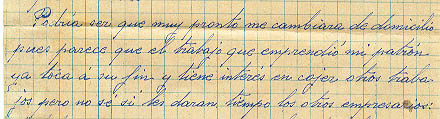 Podria ser que muy pronto me cambiara de domicilio
pues parece que el trabajo que emprendió mi patrón
ya toca á su fin y tiene interés en cojer otros traba
jos pero no sé si les daran tiempo los otros empresarios: